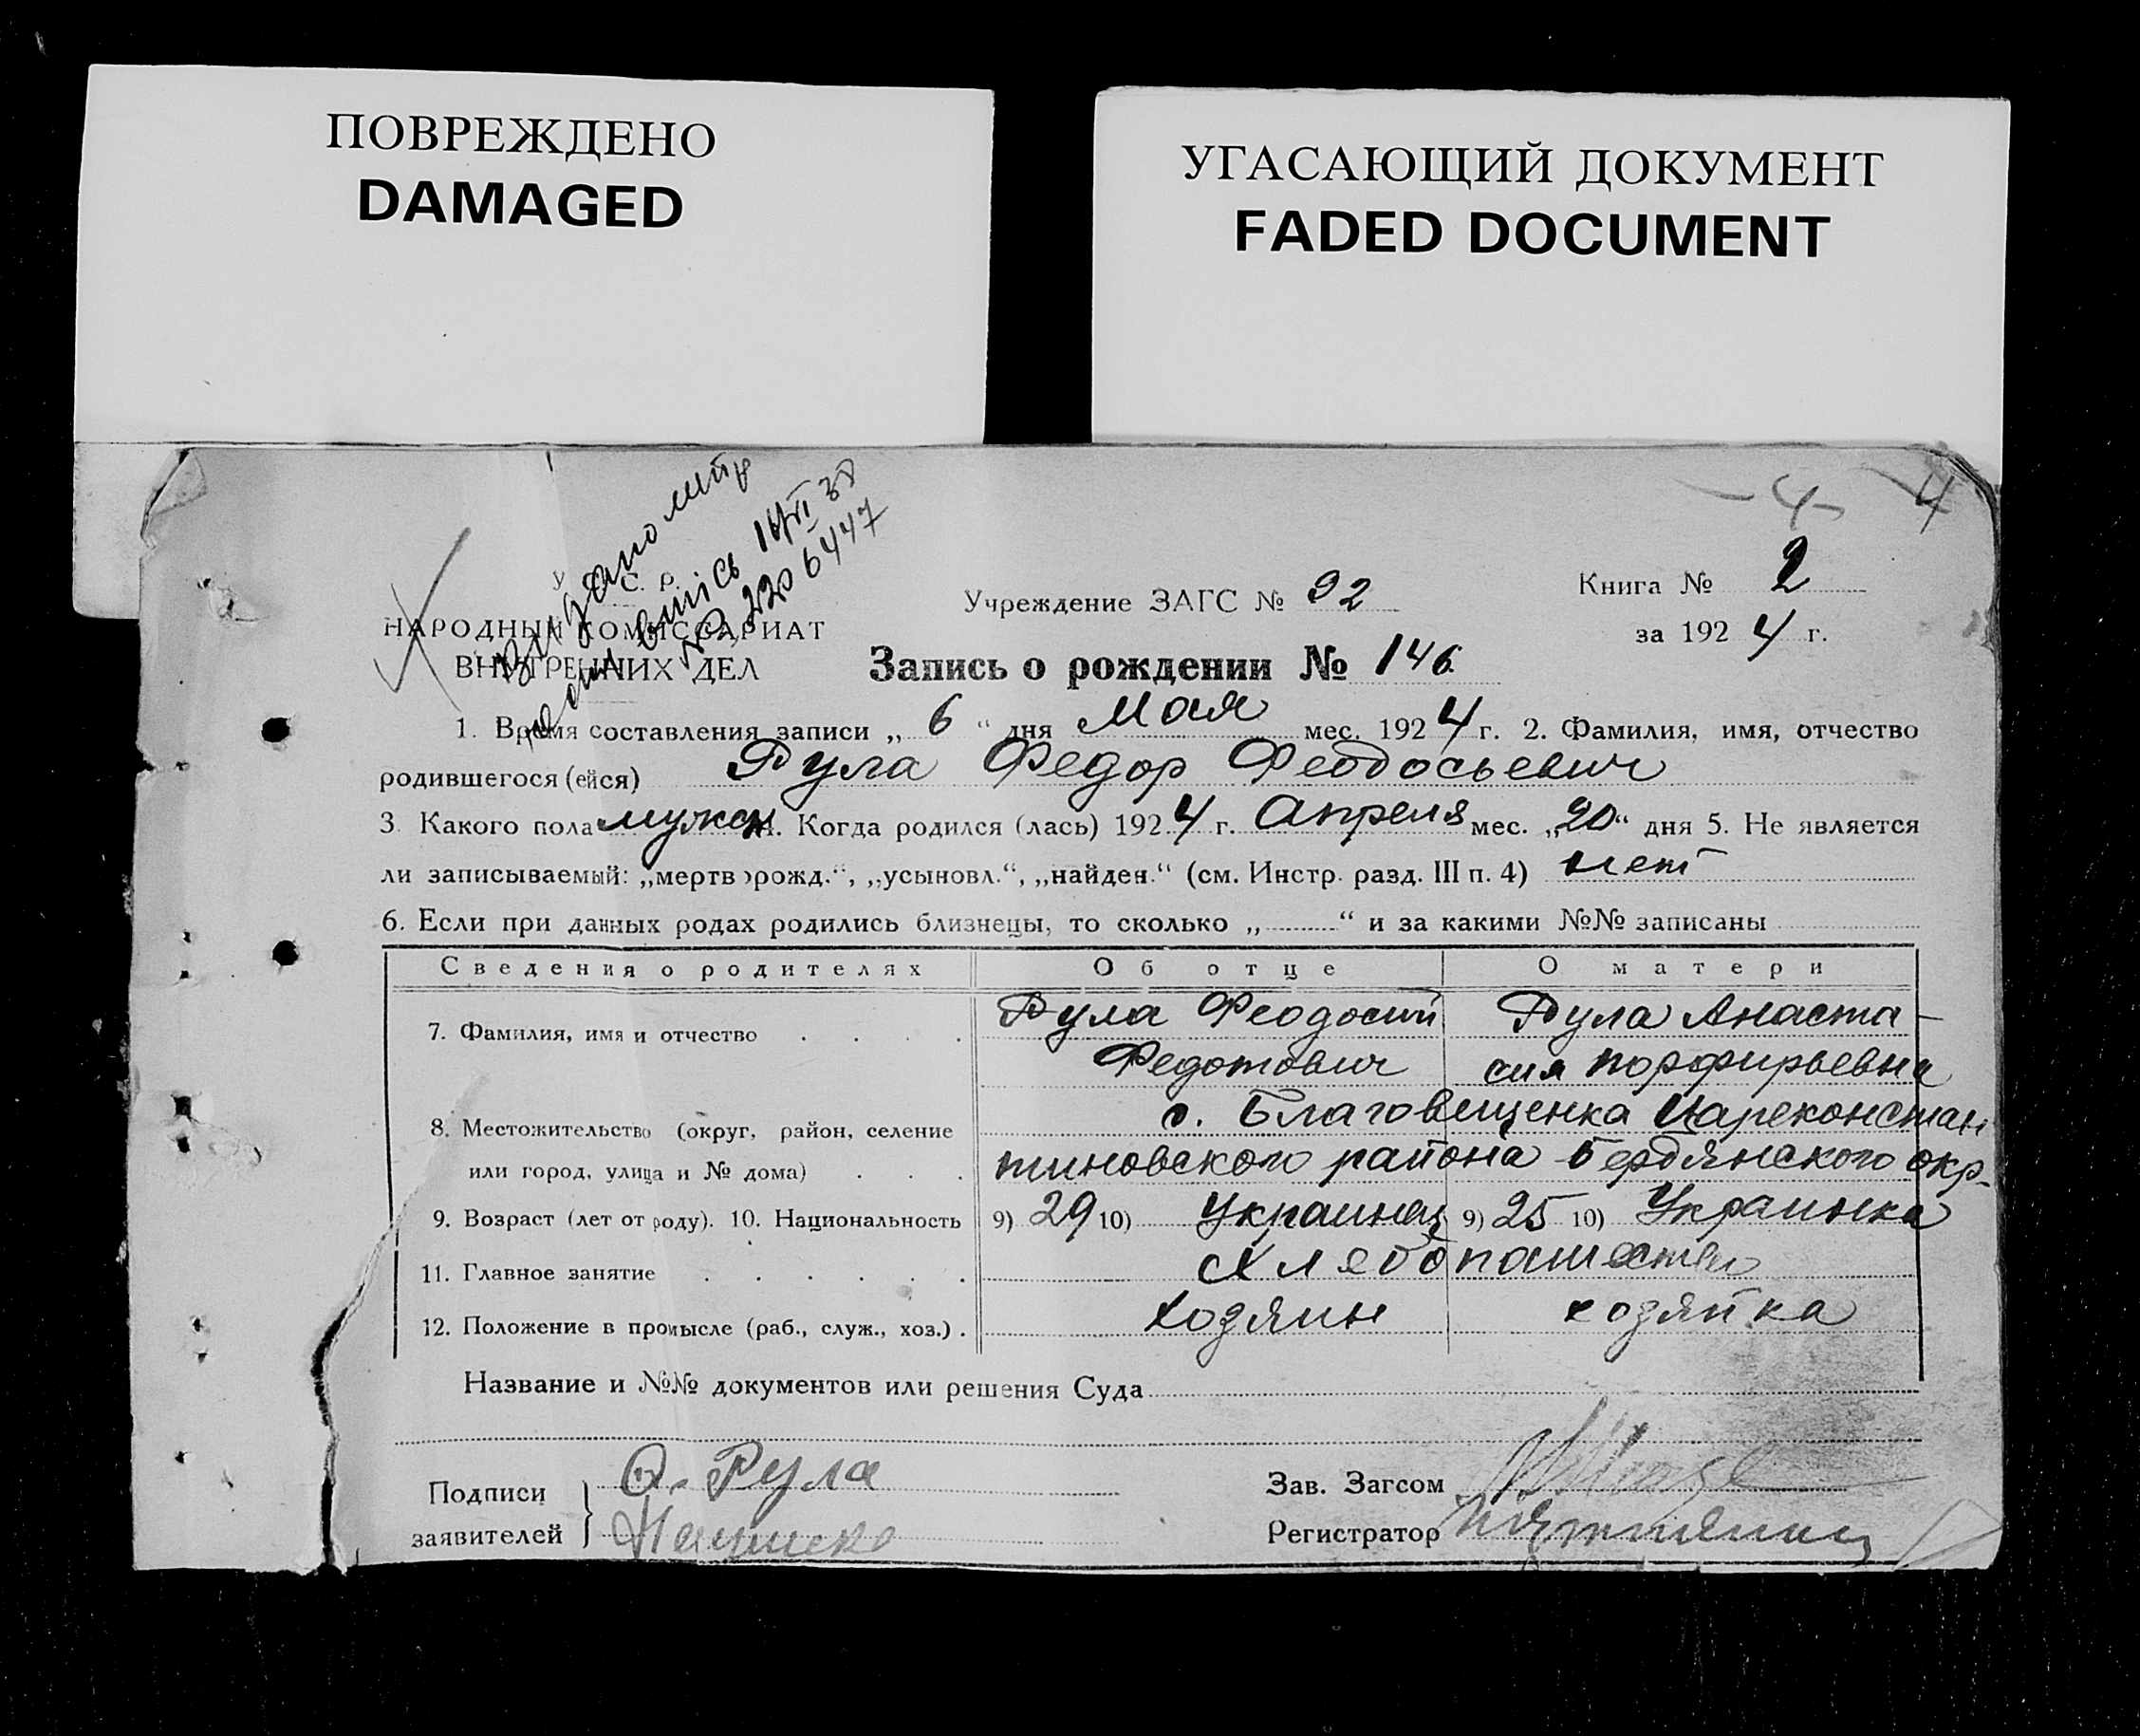 ПОВРЕЖДЕНО
DAMAGED
УГАСАЮЩИЙ ДОКУМЕНТ
FADED DOCUMENT
-4- 4
Видано метр
випись 14/VI 38
№ 2206447
У. С. С. Р.
НАРОДНЫЙ КОМИССАРИАТ
ВНУТРЕННИХ ДЕЛ
Учреждение ЗАГС № 92
Книга № 2
за 1924 г.
Запись о рождении № 146
1. Время составления записи „ 6 “ дня Мая мес. 1924 г. 2. Фамилия, имя, отчество
родившегося (ейся) Рула Федор Феодосьевич
3. Какого пола мужск 4. Когда родился (лась) 1924 г. Апреля мес. „20“ дня 5. Не является
ли записываемый: „мертворожд.“, „усыновл.“, „найден.“ (см. Инстр. разд. III п. 4) нет
6. Если при данных родах родились близнецы, то сколько „ “ и за какими №№ записаны
Сведения о родителях Об отце О матери
7. Фамилия, имя и отчество Рула Феодосий Рула Анаста-
Федотович сия Порфирьевна
8. Местожительство (округ, район, селение с. Благовещенка Цареконстан
или город, улица и № дома) тиновского района Бердянского окр.
9. Возраст (лет от роду). 10. Национальность 9) 29 10) Украинец 9) 25 10) Украинка
11. Главное занятие Хлебопашество
12. Положение в промысле (раб., служ., хоз.) хозяин хозяйка
Название и №№ документов или решения Суда
Подписи Ф. Рула
заявителей
Зав. Загсом
Регистратор